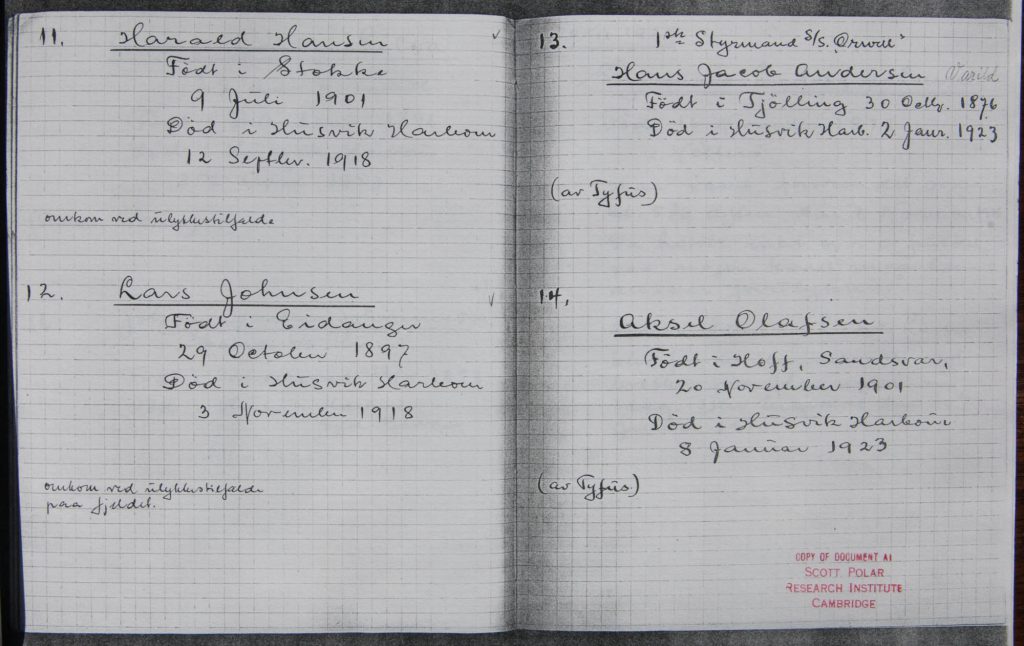 11. Harald Hansen
Födt i Stokke
9 Juli 1901
Död i Husvik Harbour
12 Septbr. 1918
omkom ved ulykkestilfælde
12. Lars Johnsen
Födt i Eidanger
29 October 1897
Död i Husvik Harbour
3 November 1918
omkom ved ulykkestilfælde
paa fjeldet.
13. 1ste Styrmand S/S. "Orwell"
Hans Jacob Andersen Varild
Födt i Tjölling 30 Octbr. 1876
Död i Husvik Harb. 2 Janr. 1923
(av Tyfus)
14.
Aksel Olafsen
Födt i Hoff, Sandsvar,
20 November 1901
Död i Husvik Harbour
8 Januar 1923
(av Tyfus)
COPY OF DOCUMENT AT
SCOTT POLAR
RESEARCH INSTITUTE
CAMBRIDGE